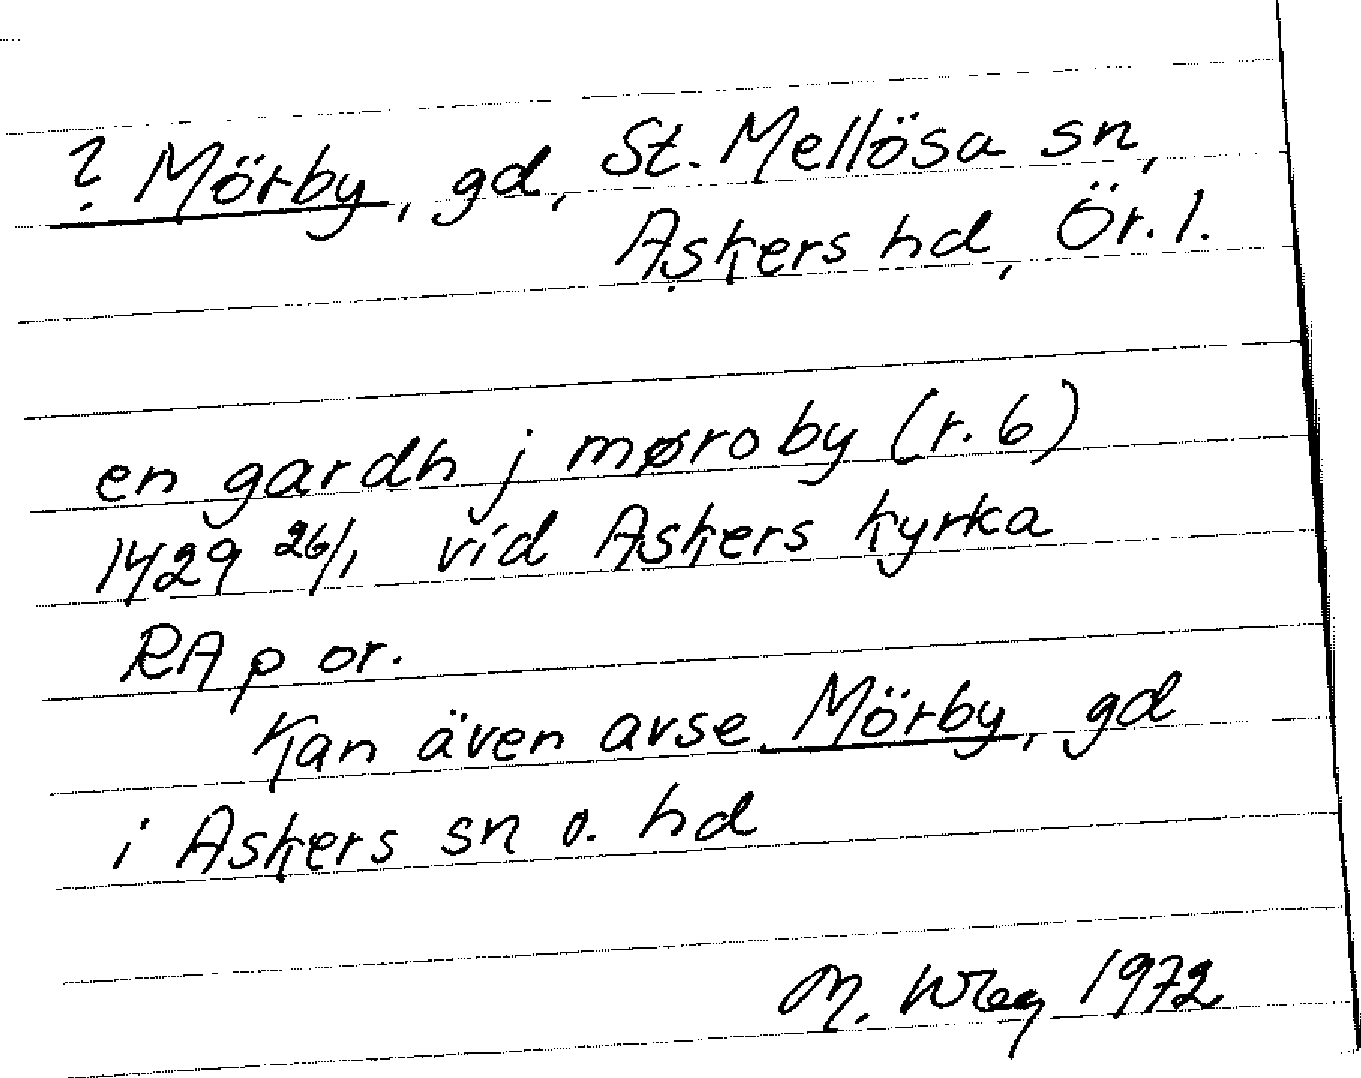 ? Mörby, gd, St. Mellösa sn,
Askers hd, Ör. l.
en gardh j møroby (r. 6)
1429 26/1 vid Askers kyrka
RA p or.
Kan även avse Mörby, gd
i Askers sn o. hd
M. 1972